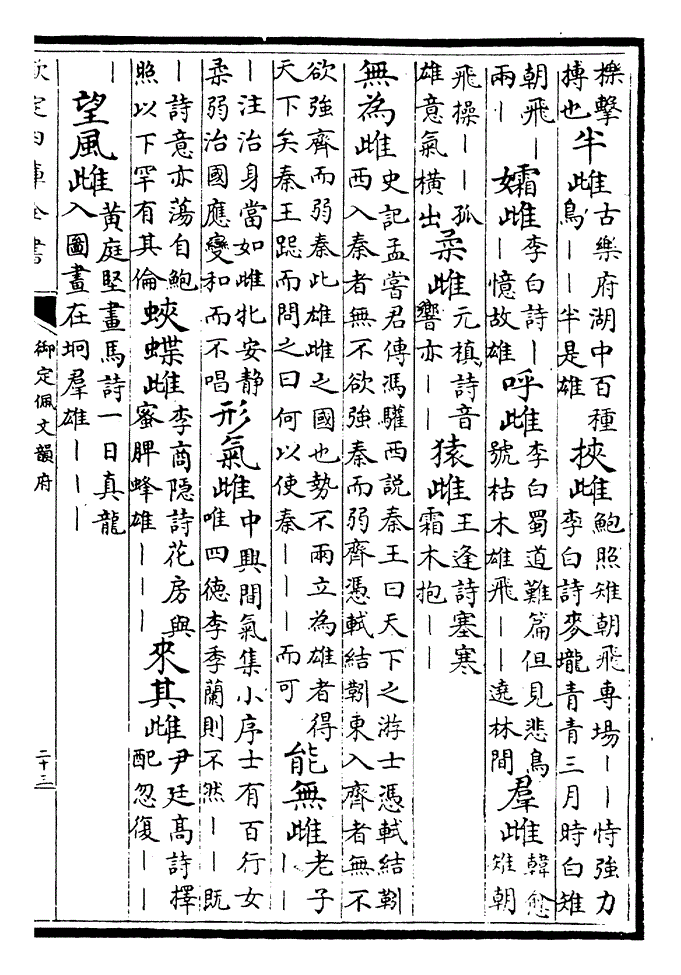 櫟擊搏也半雌古樂府湖中百種鳥丨丨半是雄挾雌鮑照雉朝飛專場丨丨恃強力李白詩麥壠青青三月時白雉
朝飛丨兩丨孀雌李白詩丨丨憶故雄呼雌李白蜀道難篇但見悲鳥號枯木雄飛丨丨遶林間羣雌韓愈雉朝
飛操丨丨孤雄意氣橫出柔雌元稹詩音響亦丨丨猿雌王逢詩塞寒霜木抱丨丨
無為雌史記孟嘗君傳馮驩西說秦王曰天下之游士憑軾結靷西入秦者無不欲強秦而弱齊憑軾結靷東入齊者無不
欲強齊而弱秦此雄雌之國也勢不兩立為雄者得天下矣秦王跽而問之曰何以使秦丨丨丨而可能無雌老子丨丨
丨注治身當如雌牝安静柔弱治國應變和而不唱形氣雌中興間氣集小序士有百行女唯四徳李季蘭則不然丨丨既
丨詩意亦蕩自鮑照以下罕有其倫蛺蝶雌李商隐詩花房與蜜脾蜂雄丨丨丨來其雌尹廷高詩擇配忽復丨丨
丨望風雌黃庭堅畫馬詩一日真龍入圖畫在坰羣雄丨丨丨
欽定四庫全書
御定佩文韻府
二十三